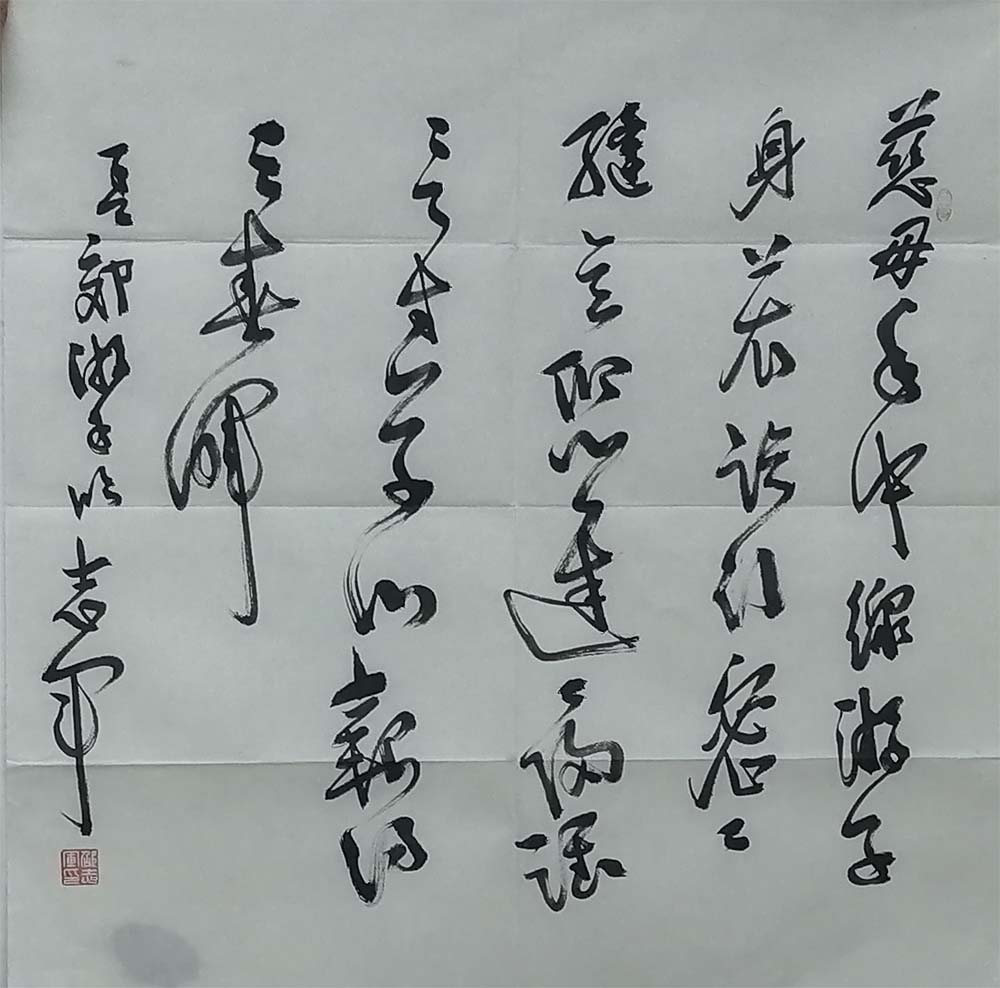 慈母手中線游子
身上衣臨行密〻
縫意恐遲〻歸誰
言寸草心報得
三春暉
孟郊游子吟 志軍